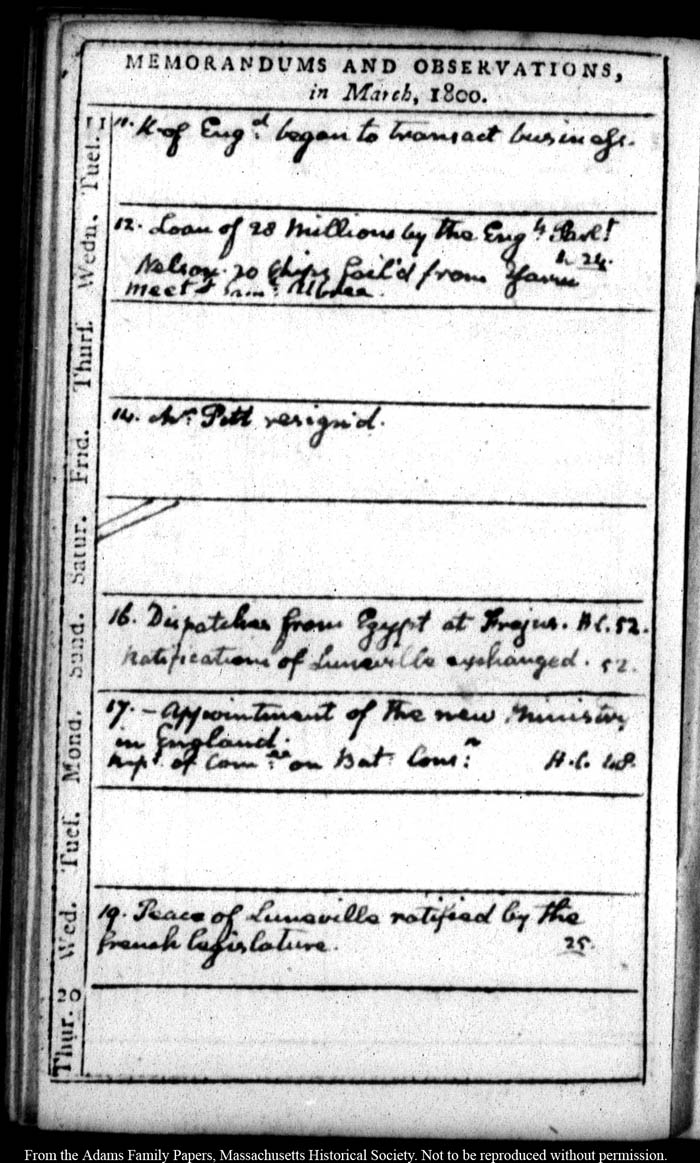 MEMORANDUMS AND OBSERVATIONS,
in March, 1800.
Tues. 11
11. K. of Eng.d began to transact business.
Wedn.
12. Loan of 28 Millions by the Eng.h Parl.t
Nelson. 20 Ships sail'd from Yarm
meet
Thurs.
Frid.
14. Mr. Pitt resign'd.
Satur.
Sund.
16. Dispatches from Egypt at Frejus. B C. 52.
Ratifications of Luneville exchanged. 52.
Mond.
17. – Appointment of the new Ministry
in England.
of Com.ee on Bat. Cons.n H. C. 48.
Tues.
Wed.
19. Peace of Luneville ratified by the
french legislature. 25.
Thur. 20
From the Adams Family Papers, Massachusetts Historical Society. Not to be reproduced without permission.